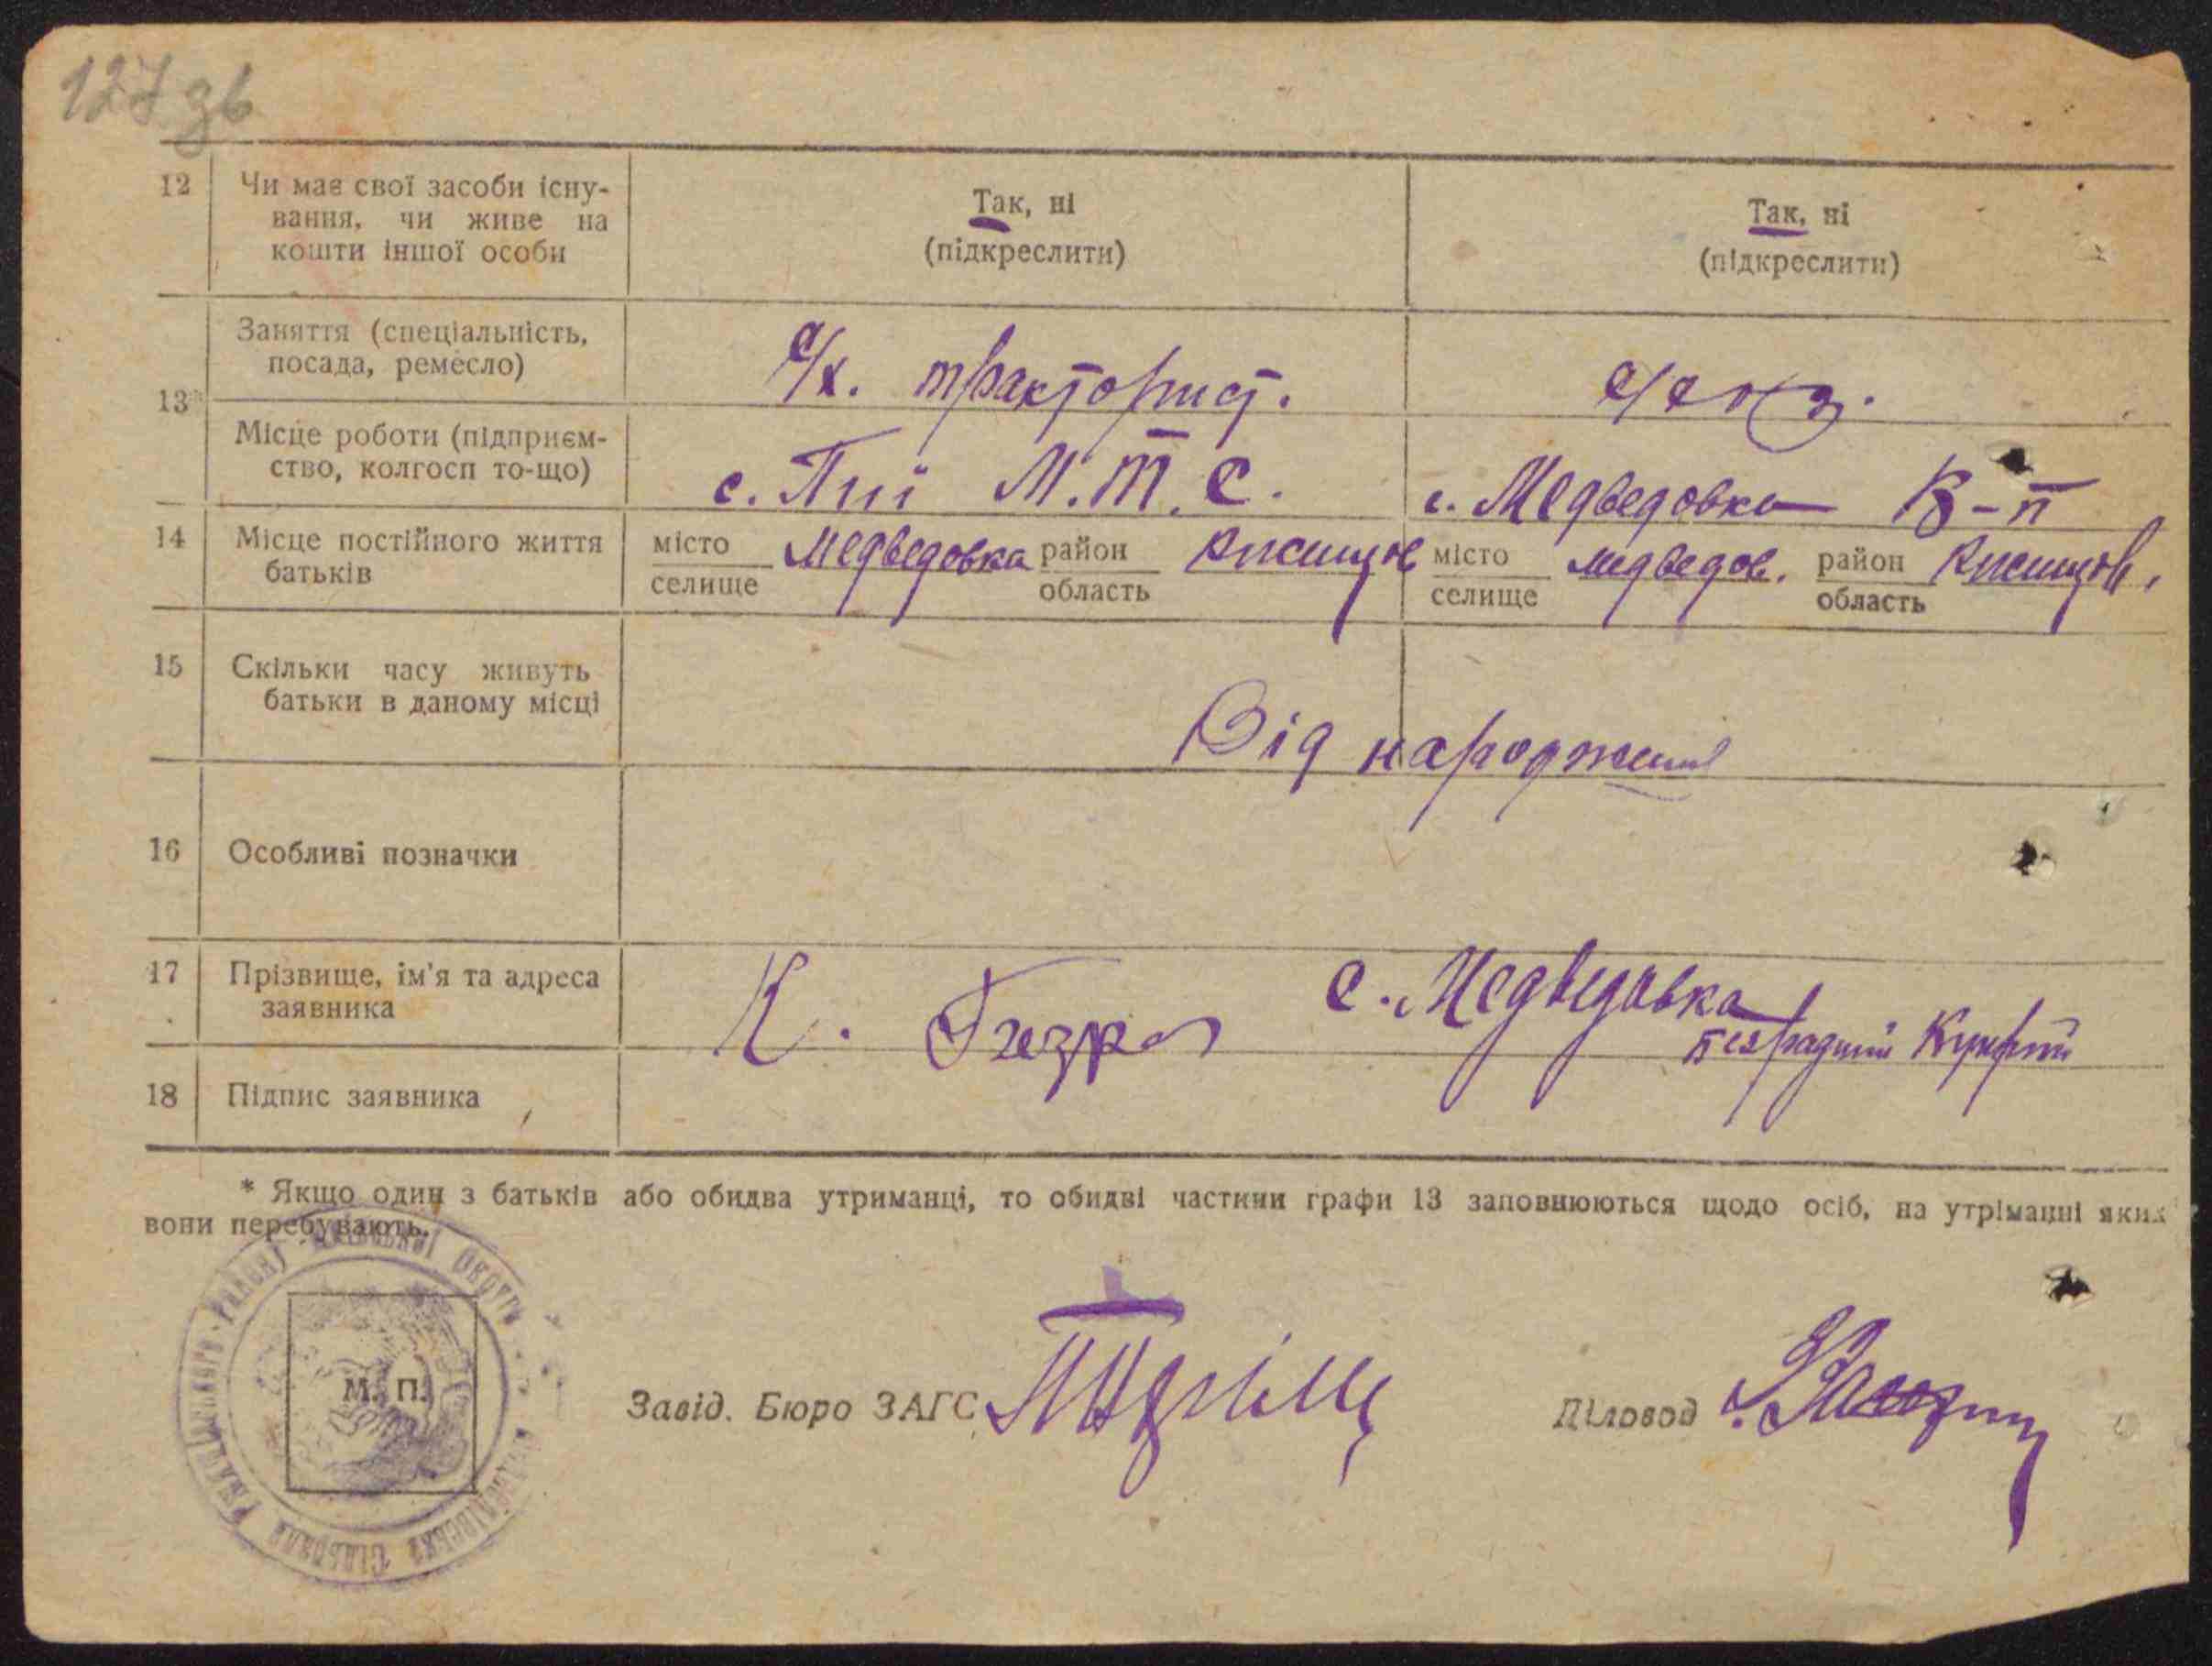 127 зв
12 Чи має свої засоби існу-
вання, чи живе на
кошти іншої особи
Так, ні
(підкреслити)
Так, ні
(підкреслити)
13*
Заняття (спеціальність,
посада, ремесло)
с/х. тракторист.
Місце роботи (підприєм-
ство, колгосп то-що)
с. Пії М.Т.С.
с. Медведовка К-п
14 Місце постійного життя
батьків
місто
селище
Медведовка
район
область
місто
селище
медведов.
район
область
15 Скільки часу живуть
батьки в даному місці
Від народження
16 Особливі позначки
17 Прізвище, ім'я та адреса
заявника
с. Медведовка
К.
18 Підпис заявника
* Якщо один з батьків або обидва утриманці, то обидві частини графи 13 заповнюються щодо осіб, на утріманні яких
вони перебувають.
М. П.
Завід. Бюро ЗАГС
Діловод